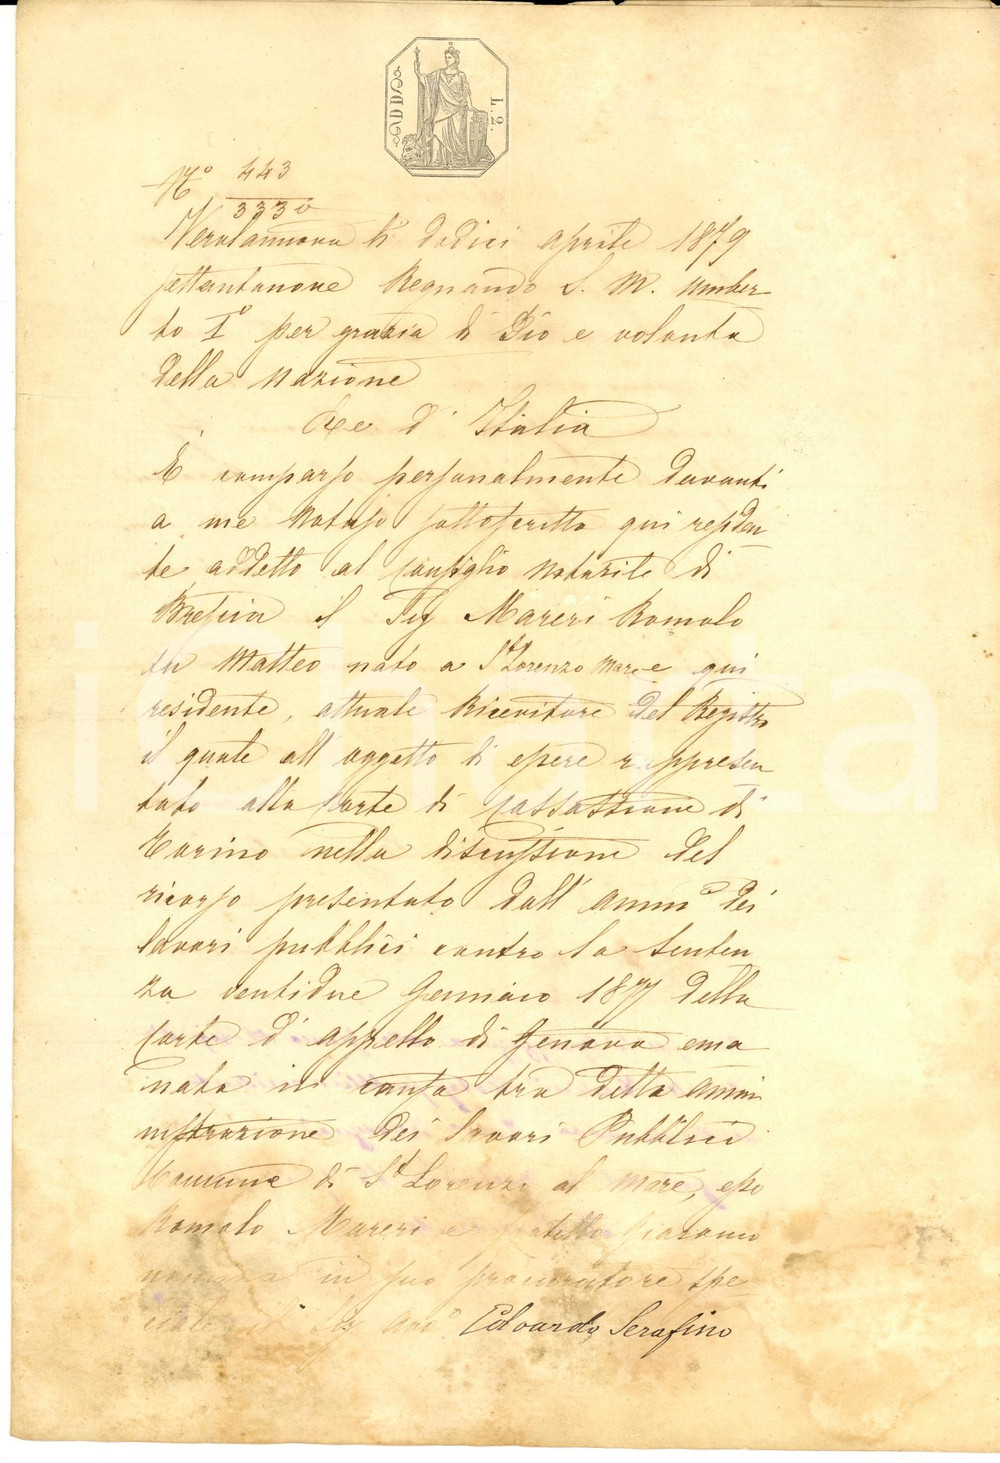 L. 2.
N° 443
3330
Verolanuova li dodici aprile 1879
settantanove Regnando S. M. Umber
to I° per grazia di Dio e volontà
della Nazione
Re d'Italia
È comparso personalmente davanti
a me Notajo sottoscritto qui residen
te addetto al Consiglio Notarile di
Brescia il Sig Mareri Romolo
fu Matteo nato a S.t Lorenzo Mare e qui
residente, attuale Ricevitore del Registro
il quale all'oggetto di essere rappresen
tato alla Corte di Cassazione di
Torino nella discussione del
ricorso presentato dall'Ammne dei
lavori pubblici contro la senten
za ventidue Gennaio 1877 della
Corte d'appello di Genova ema
nata in causa tra detta ammi
nistrazione dei Lavori Pubblici
Comune di S.t Lorenzo al Mare, esso
Romolo Mareri e fratello Giacomo
nomina in suo procuratore spe
ciale il Sig Avv° Edoardo Serafino